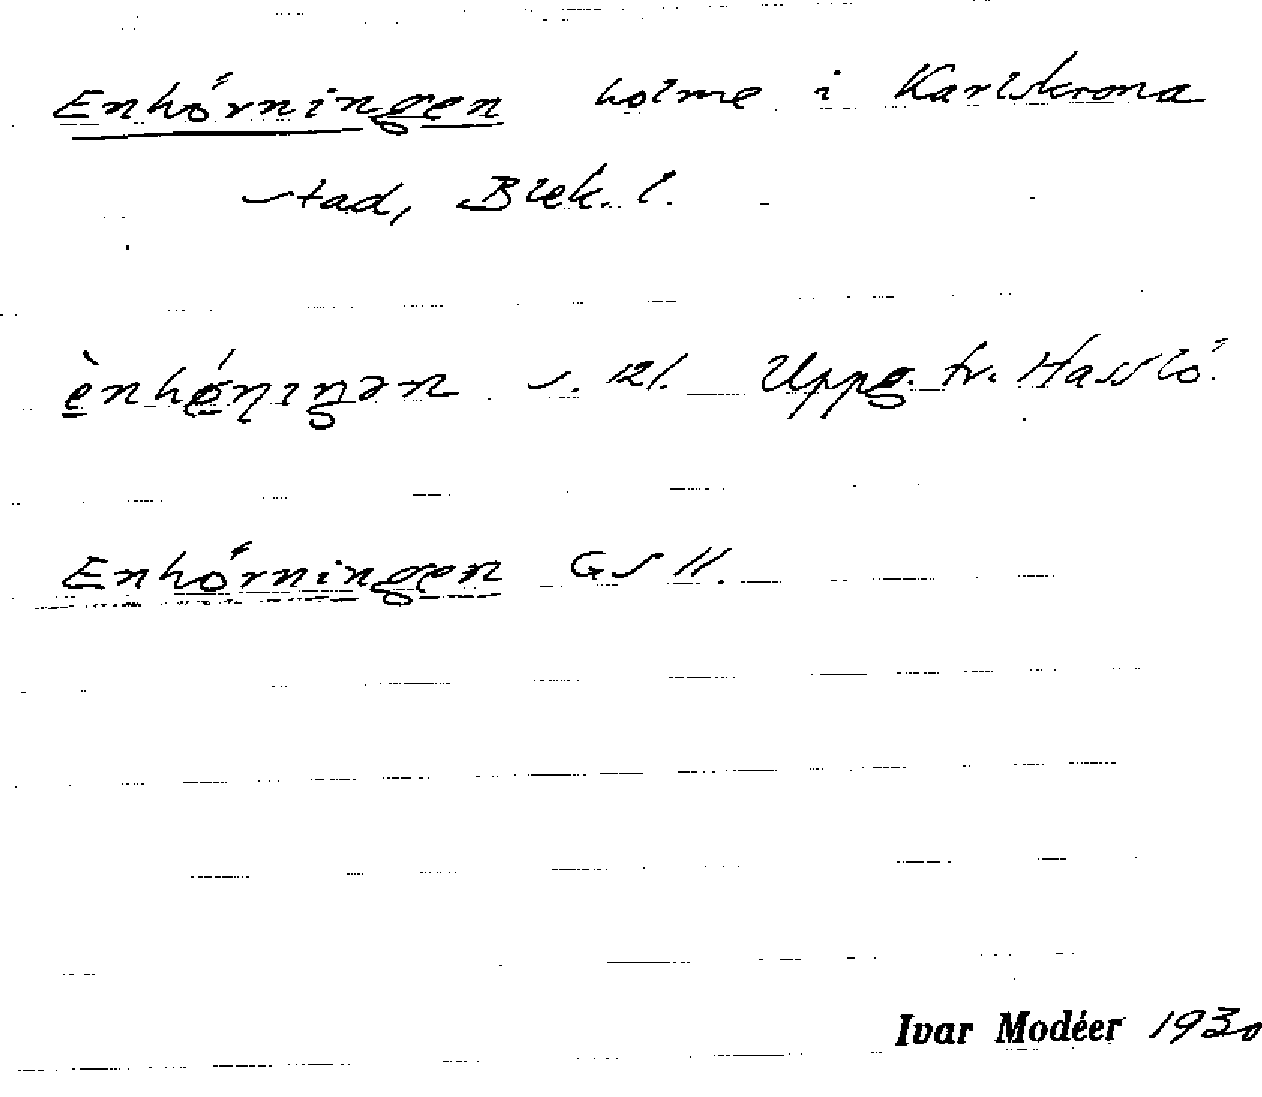 Enhörningen holme i Karlskrona
stad, Blek. l.
s. 121. Uppg. fr. Hasslö.
Enhörningen GS II.
Ivar Modéer 1930